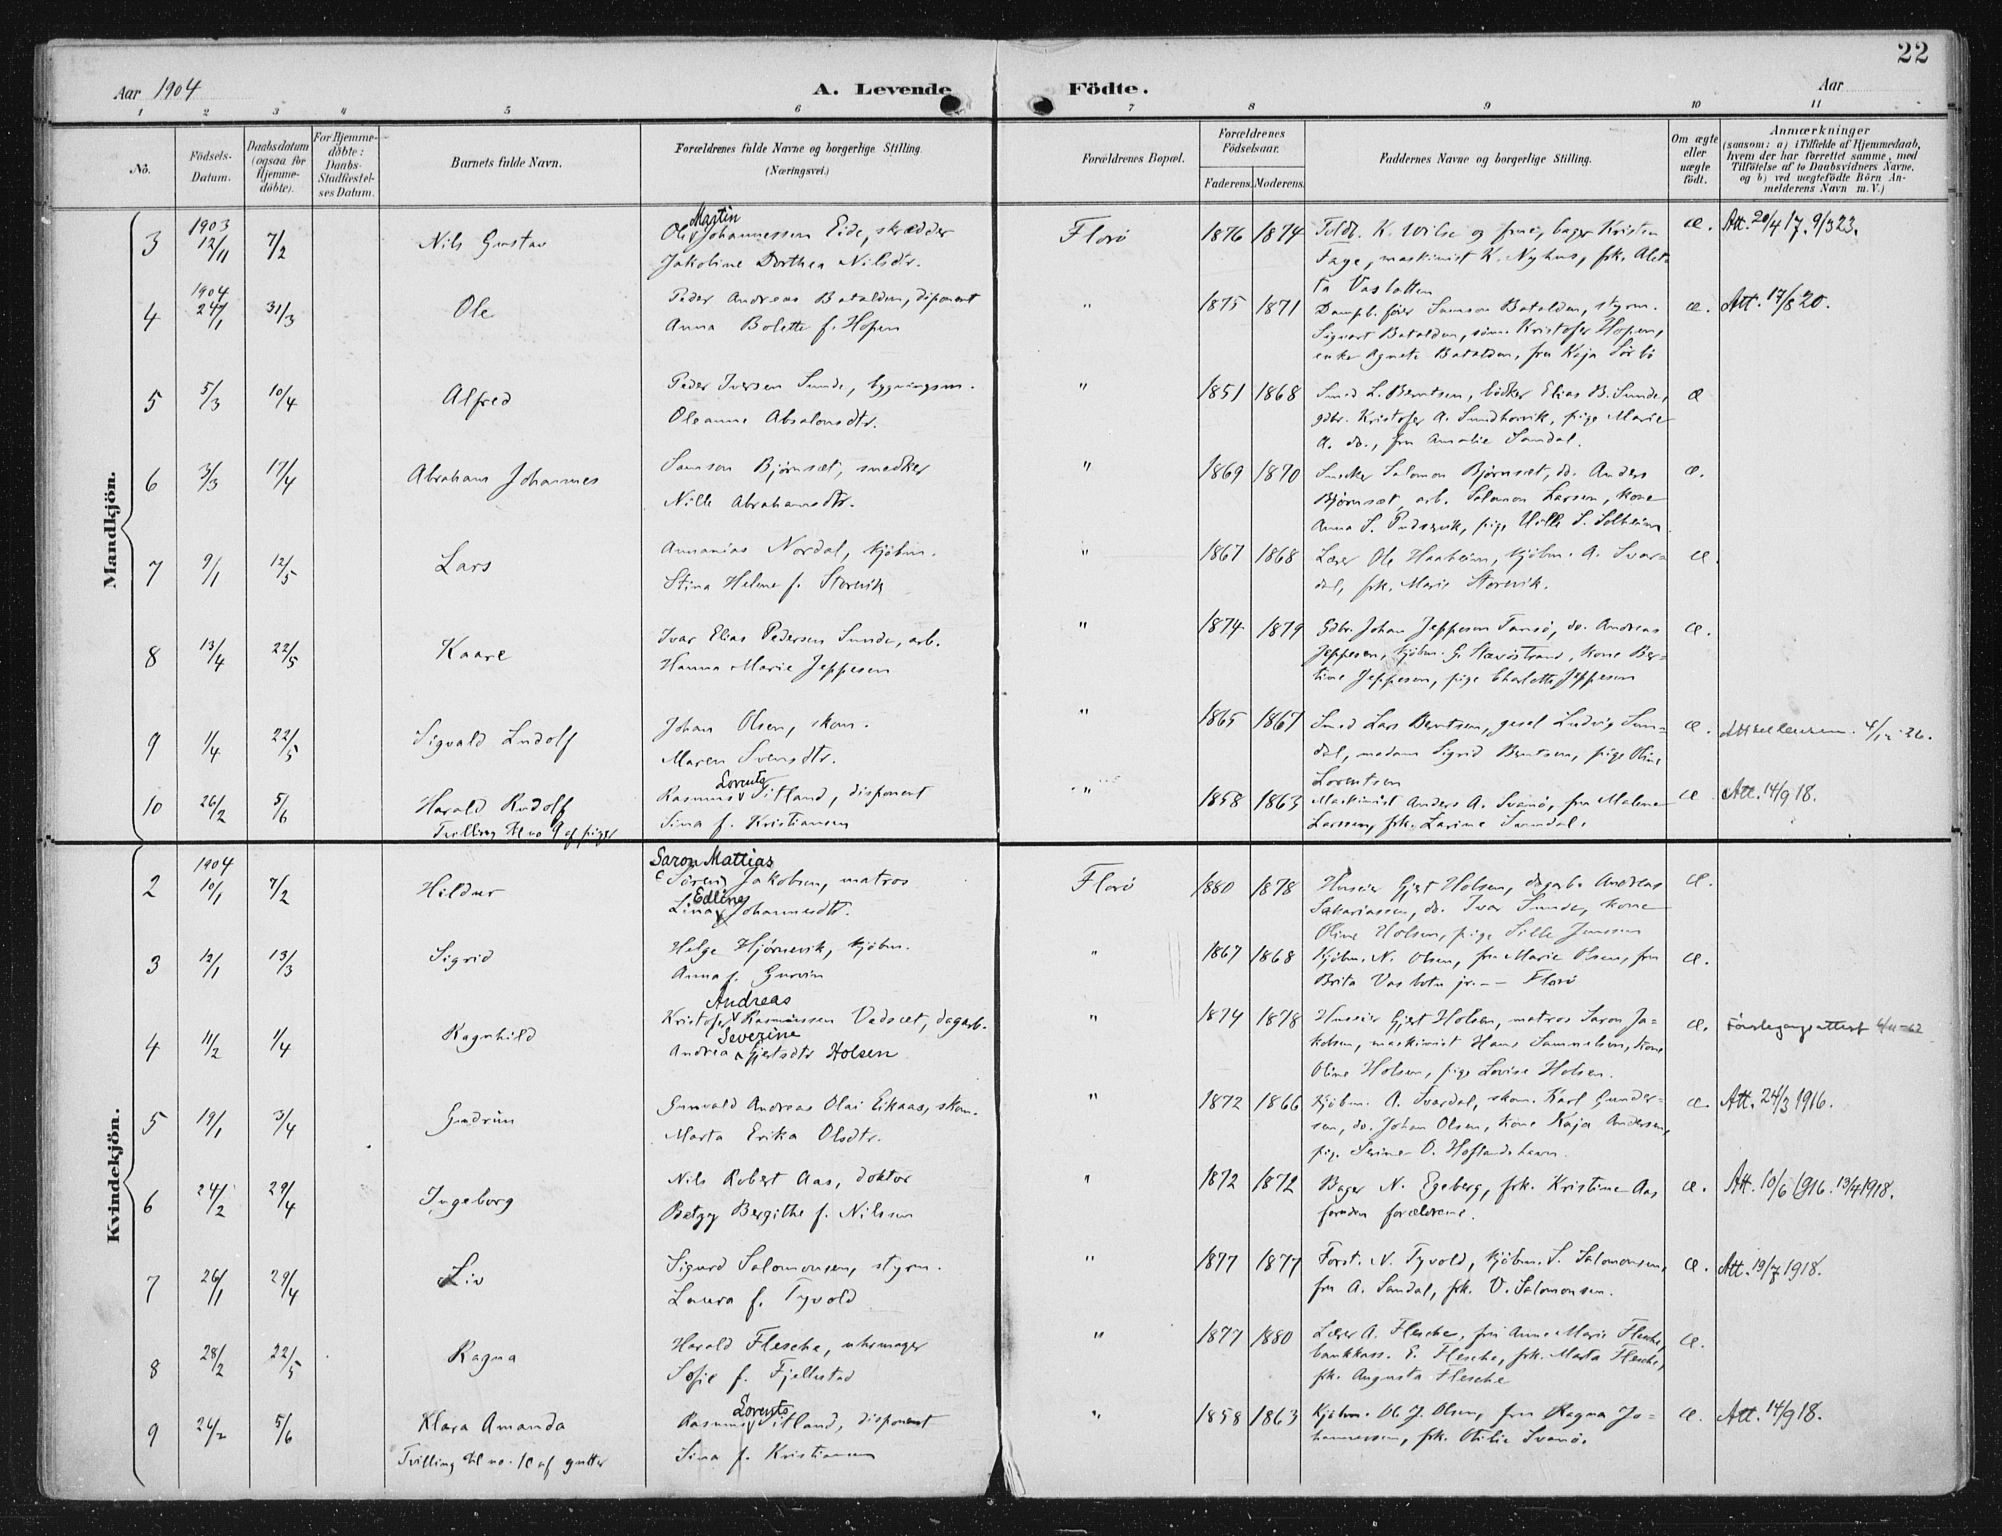 22
Aar 1904 A. Levende Födte. Aar
1 2 3 4 5 6 7 8 9 10 11
No.
Födsels-Datum.
Daabsdatum (ogsaa for Hjemme-döbte).
For Hjemme-döbte: Daabs-Stadfæstel-ses Datum.
Barnets fulde Navn.
Forældrenes fulde Navne og borgerlige Stilling.
(Næringsvei.)
Forældrenes Bopæl.
Forældrenes Födselsaar.
Faderens. Moderens.
Faddernes Navne og borgerlige Stilling.
Om ægte eller uægte födt.
Anmærkninger
(saasom: a) i Tilfælde af Hjemmedaab,
hvem der har forrettet samme, med
Tilföielse af to Daabsvidners Navne,
og b) ved uægtefödte Börn An-
melderens Navn m. V.)
Mandkjön.
3 1903 12/11 7/2 Nils Gustav
Martin
Ole Johannessen Eide, skrædder
Jakobine Dorthea Nilsdtr.
Florö 1876 1874
Toldb. K. Wilse og frue, bager Kristen
Fage, maskinist K. Nyhus, frk. Alet-
ta Vasbotten
æ. Att. 20/4 17, 9/3 23.
4 1904 24/1 31/3 Ole
Peder Andreas Batalden, disponent
Anna Bolette f. Hopen
" 1875 1871
Dampb.förer Samson Batalden, styrm.
Sigvart Batalden, Kristofer Hopen,
enke Agnete Batalden, fru Kaja Sörbö
æ. Att. 17/8 20.
5 5/3 10/4 Alfred
Peder Iversen Sunde, bygningsm.
Oleanne Absalonsdtr.
" 1851 1868
Smed L. Berntsen, bödker Elias B. Sunde,
gdbr. Kristofer A. Sundhovik, pige Marie
A. do., fru Amalie Sandal.
æ
6 3/3 17/4 Abraham Johannes
Samson Björnset, snedker
Nille Abrahamsdtr.
" 1869 1870
Snedker Salomon Björnset, do. Anders
Björnset, arb. Salomon Larsen, kone
Anna S. pige Nille S. Solheim
æ.
7 9/1 12/5 Lars
Annanias Nordal, kjöbm.
Stina Helene f. Storevik
" 1867 1868
Lærer Ole Haaheim, kjöbm. A. Svar-
dal, frk. Marie Storevik.
æ.
8 13/4 22/5 Kaare
Ivar Elias Pedersen Sunde, arb.
Hanna Marie Jeppesen
" 1874 1879
Gdbr. Johan Jeppesen Tansö, do. Andreas
Jeppesen, kjöbm. G. kone Ber-
tine Jeppesen, pige Charlotte Jeppesen
æ.
9 1/4 22/5 Sigvald Ludolf
Johan Olsen, skom.
Maren Svensdtr.
" 1865 1867
Smed Lars Berntsen, gesel Ludvig San-
dal, madam Sigrid Berntsen, pige Oline
Lorentsen
æ.
10 26/2 5/6 Harald Rudolf
Tvilling til no 9 af piger
Lorents
Rasmus Sitland, disponent
Sina f. Kristiansen
" 1858 1863
Maskinist Anders A. Svanö, fru Malene
Larssen, frk. Larine Svendal.
æ. Att. 14/9 18.
Kvindekjön.
2 1904 10/1 7/2 Hildur
Saron Mattias
Sören Jakobsen, matros
Edline
Lina Johannesdtr.
Florö 1880 1878
Huseier Gjert Holsen, dagarb. Andreas
Sakariassen, do. Ivar Sunde, kone
Oline Holsen, pige Sille Jensen
æ.
3 12/1 13/3 Sigrid
Helge Hjörnevik, kjöbm.
Anna f. Gurvin
" 1867 1868
Kjöbm. N. Olsen, fru Marie Olsen, fru
Brita Vasbotn jr. — Florö
æ.
4 11/2 1/4 Ragnhild
Andreas
Kristofer Rasmussen Vadset, dagarb.
Severine
Andrea Gjertsdtr Holsen
" 1874 1878
Huseier Gjert Holsen, matros Saron Ja-
kobsen, maskinist Hans Samuelsen, kone
Oline Holsen, pige Lovise Holsen.
æ. Förstegangsattest
5 19/1 3/4 Gudrun
Gunvald Andreas Olai Eikaas, skom.
Marta Erika Olsdtr.
" 1872 1866
Kjöbm. A. Svardal, skom. Karl Gunder-
sen, do. Johan Olsen, kone Kaja Andersen,
pige Serine O. Hoflandshavn.
æ. Att. 24/3 1916.
6 24/2 29/4 Ingeborg
Nils Robert Aas, doktor
Betzy Bergithe f. Nilssen
" 1872 1872
Bager N. Egeberg, frk. Kristine Aas
foruden forældrene.
æ. Att. 10/6 1916. 13/4 1918.
7 26/1 29/4 Liv
Sigurd Salomonsen, styrm.
Laura f. Tyvold
" 1877 1877
Forst. N. Tyvold, kjöbm. S. Salomonsen,
fru A. Sandal, frk. V. Salomonsen.
æ. Att. 19/7 1918.
8 28/2 22/5 Ragna
Harald Flesche, uhrmager
Sofie f. Fjellestad
" 1877 1880
Lærer A. Flesche, fru Anne Marie Flesche,
bankkass. E. Flesche, frk. Marta Flesche,
frk. Augusta Flesche
æ.
9 26/2 5/6 Klara Amanda
Tvilling til no. 10 af gutter
Lorents
Rasmus Sitland, disponent
Sina f. Kristiansen
" 1858 1863
Kjöbm. Ole J. Olsen, fru Ragna Jo-
hannessen, frk. Otilie Svanö.
æ. Att. 14/9 18.